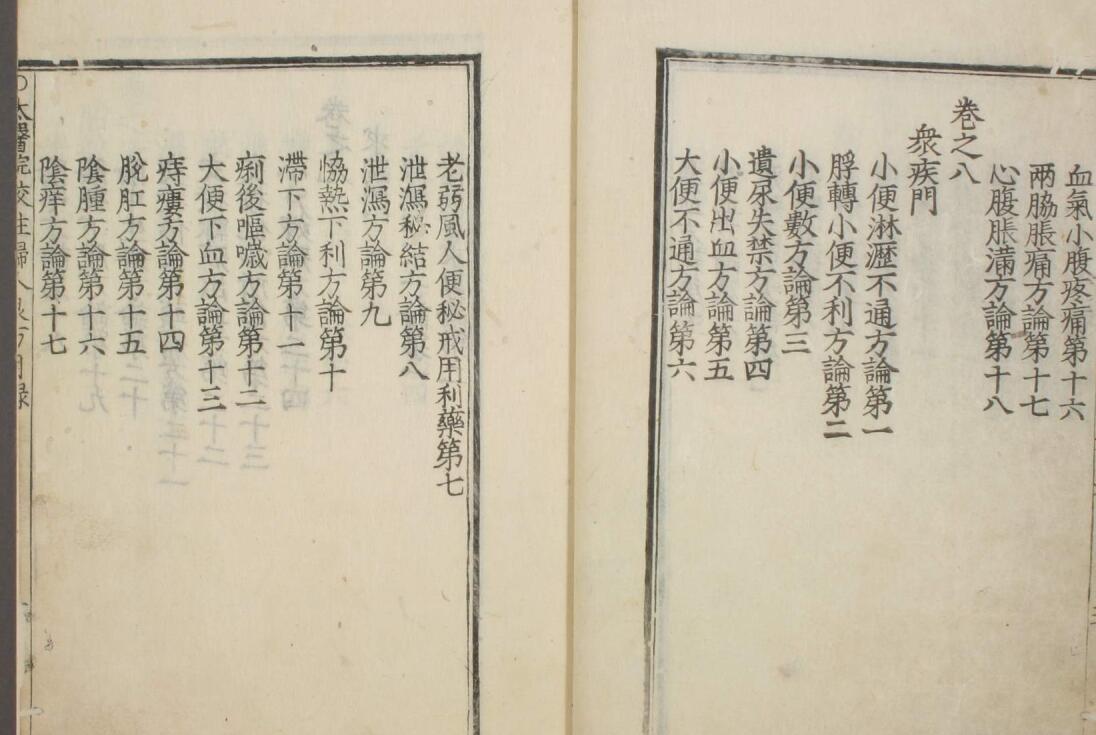 血氣小腹疼痛第十六
兩脇脹痛方論第十七
心腹脹滿方論第十八
卷之八
衆疾門
小便淋瀝不通方論第一
脬轉小便不利方論第二
小便數方論第三
遺尿失禁方論第四
小便出血方論第五
大便不通方論第六
老弱風人便秘戒用利藥第七
泄瀉秘結方論第八
泄瀉方論第九
恊熱下利方論第十
滯下方論第十一
痢後嘔噦方論第十二
大便下血方論第十三
痔瘻方論第十四
脫肛方論第十五
陰腫方論第十六
陰痒方論第十七
太醫院校註婦人良方目錄